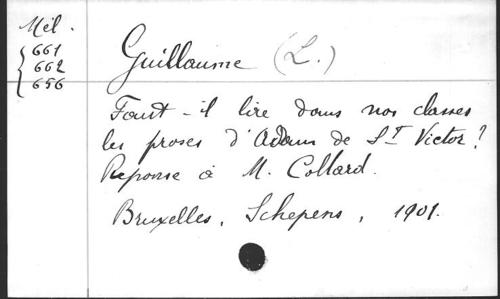 Mél.
661
662
656
Guillaume (L.)
Faut-il lire dans nos classes
les proses d'Adam de St Victor?
Réponse à M. Collard.
Bruxelles, Schepens, 1901.